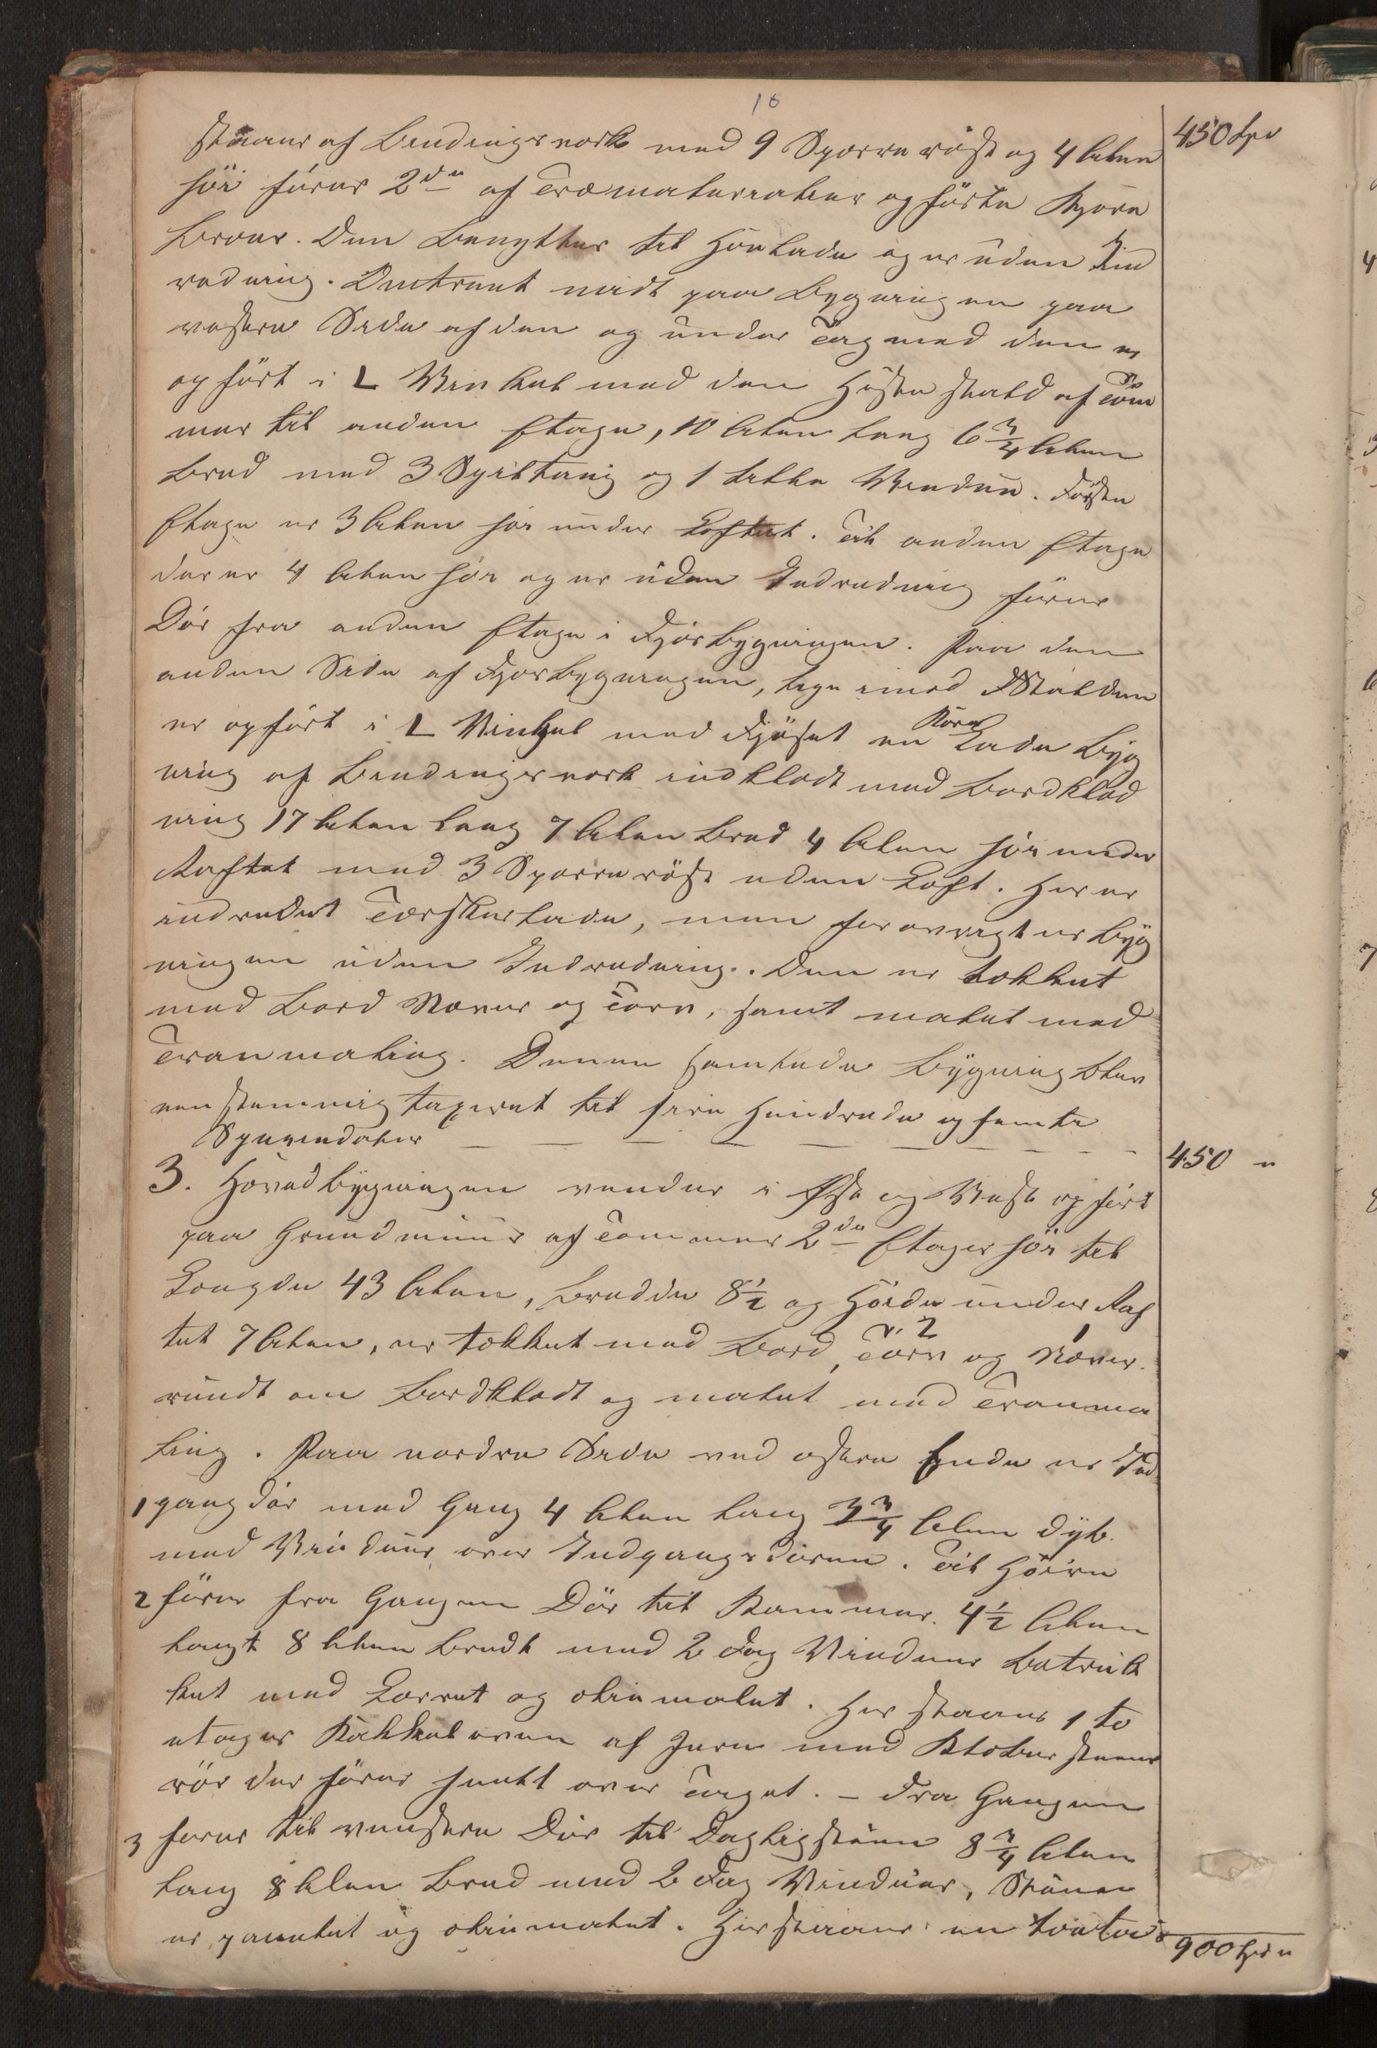 16
staaer af Bindingsverk med 9 Sperrerøst og 4 Alen 450 Spd
høi fører 2de af Træmaterialier opførte Kjøre
broer. Den benyttes til Høelade og er uden Ind
redning. Omtrent midt paa Bygningen paa
vestere Side af den og under Tag med den er
opført i L Vinkel med den Hestestald af Tøm
mer til anden Etage, 10 Alen lang 6 3/4 Alen
bred med 3 Spiltaug og 1 lidte Vindue. Første
Etage er 3 Alen høi under Loftet. Til anden Etage
der er 4 Alen høi og er uden Indredning fører
Dør fra anden Etage i Fjøsbygningen. Paa den
anden Side af Fjøsbygningen, lige imod Stalden
er opført i L Vinkel med Fjøset en Korn Lade Byg
ning af Bindingsverk indklædt med Bordklæd
ning 17 Alen lang 7 Alen bred 4 Alen høi under
Raftet med 3 Sperrerøst uden Loft. Her er
indredet Tærskerlade, men forøvrigt er Byg
ningen uden Indredning. Den er tækket
med Bord Næver og Torv, samt malet med
Tranmaling. Denne samlede Bygning blev
eenstemmig taxeret til fire Hundrede og femti
Speciedaler — — — — — — 450 "
3. Hovedbygningen vender i Øst og Vest opført
paa Grundmuur af Tømmer 2de Etager høi til
Længde 43 Alen, Bredde 8 1/2 og Høide under Raf
tet 7 Alen, er tækket med Bord, 2 Torv og 1 Næver.
rundt om bordklædt og malet med Tranma
ling. Paa nordre Side ved østere Ende er Ind
1 gangdør med Gang 4 Alen lang 3 3/4 Alen dyb.
med Vinduer over Indgangsdøren. Til Høire
2 fører fra Gangen Dør til Kammer. 4 1/2 Alen
langt 8 Alen bredt med 2 Fag Vinduer betræk
ket med Lærret og oliemalet. Her staaer 1 to
etages Kakkelovn af Jern med Klæbersteens
rør der fører heelt over Taget. – Fra Gangen
3 fører til venstere Dør til Dagligstuen 8 3/4 Alen
lang 8 Alen bred med 2 Fag Vinduer, Stuen
er panelet og oliemalet. Her staaer en toeta
900 Spd "